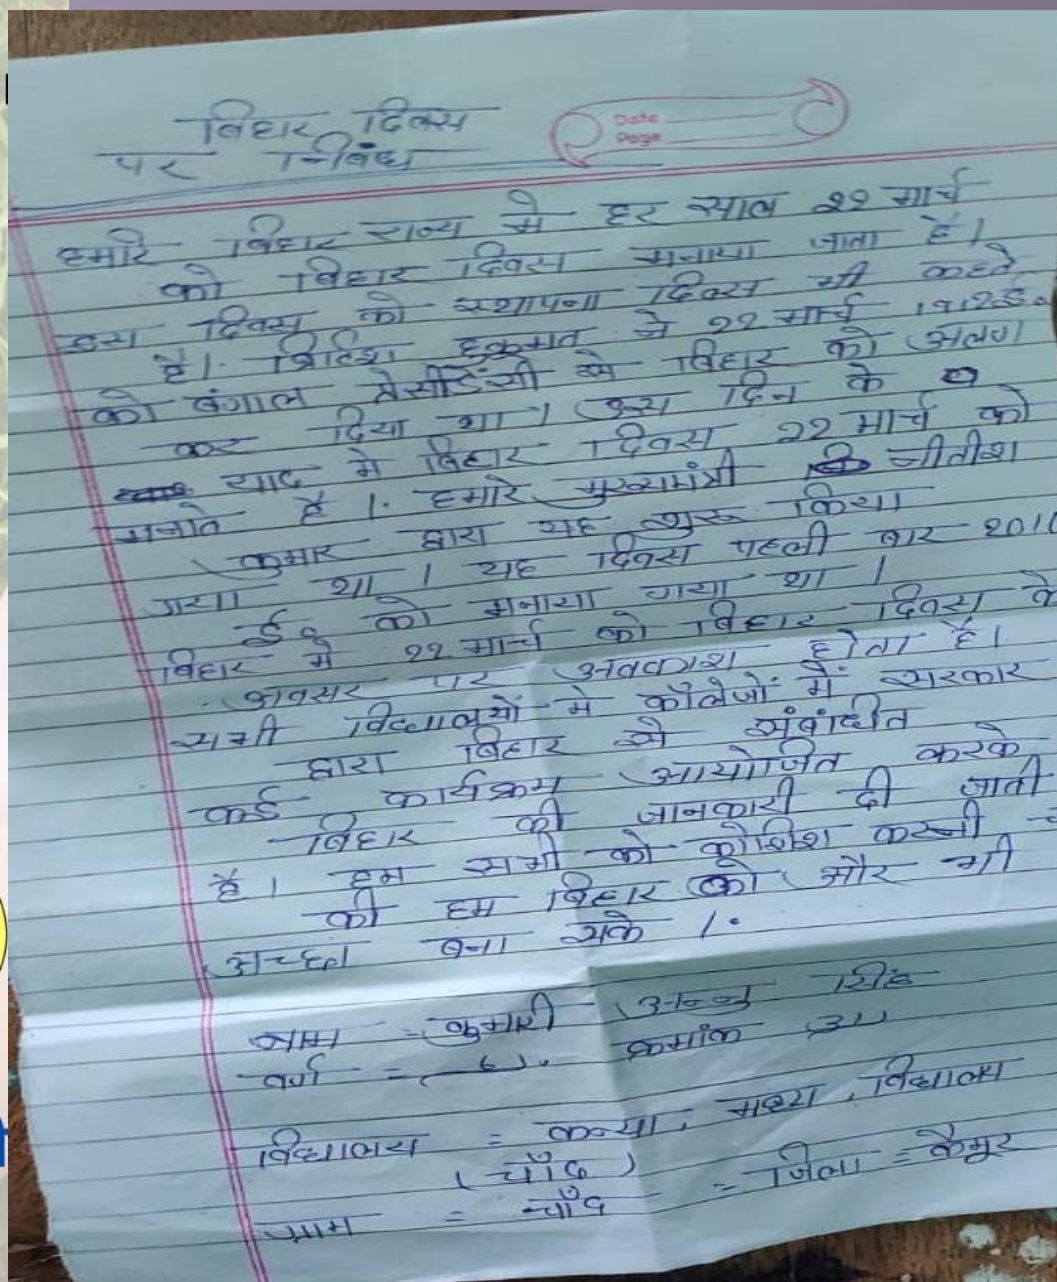 बिहार दिवस
पर निबंध
Date
Page
हमारे बिहार राज्य मे हर साल 22 मार्च
को बिहार दिवस मनाया जाता है।
इस दिवस को स्थापना दिवस भी कहते
है। ब्रिटिश हुकूमत ने 22 मार्च 1912 ई०
को बंगाल प्रेसीडेंसी से बिहार को अलग
कर दिया था। उस दिन के
याद मे बिहार दिवस 22 मार्च को
मनाते है। हमारे मुख्यमंत्री नीतीश
कुमार द्वारा यह शुरू किया
गया था। यह दिवस पहली बार 2010
ई० को मनाया गया था।
बिहार मे 22 मार्च को बिहार दिवस के
अवसर पर अवकाश होता है।
सभी विद्यालयों मे कॉलेजों में सरकार
द्वारा बिहार से संबंधीत
कई कार्यक्रम आयोजित करके
बिहार की जानकारी दी जाती
है। हम सभी को कोशिश करनी
की हम बिहार को और भी
अच्छा बना सके।
नाम = कुमारी अन्नु सिंह
वर्ग = क्रमांक
विद्यालय = कन्या, मध्य, विद्यालय
(चाँद)
ग्राम = चाँद = जिला = कैमुर